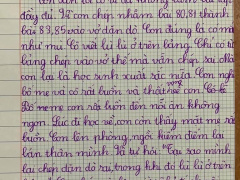 đầy đủ. Vì con chép nhầm bài 80, 81 thành
bài 83, 85 vào vở dặn dò. Con đúng là có mắt
như mù. Cô viết lù lù ở trên bảng. Chỉ có từ
bảng chép vào vở thế mà vẫn chép sai
còn lại là học sinh xuất sắc nữa. Con nghĩ
bố mẹ và cô rất buồn và thất vọng về con
Bố mẹ con rất buồn đến nỗi ăn không
ngon. Lúc đi học về, con còn thấy mặt mẹ rất
buồn. Con lên phòng, ngồi kiểm điểm lại
bản thân mình. Và tự hỏi: "Tại sao mình
lại chép dặn dò sai, trong khi đó lù lù ở trên